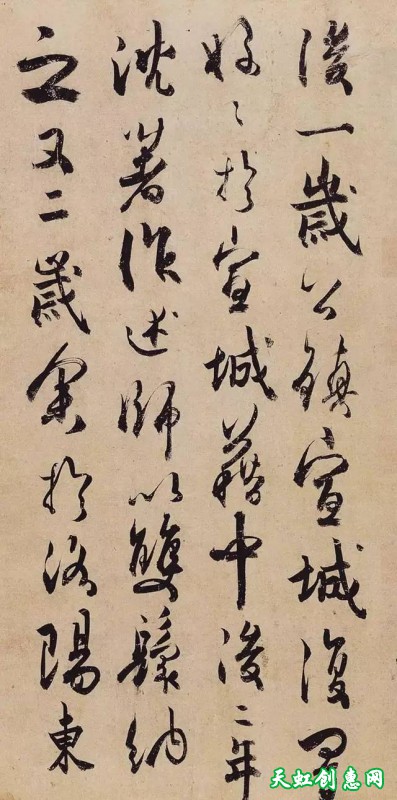 後一歲公鎮宣城復置
好〻於宣城藉中後二年
沈著作述師以雙鬟納
之又二歲余於洛陽東
天虹创惠网